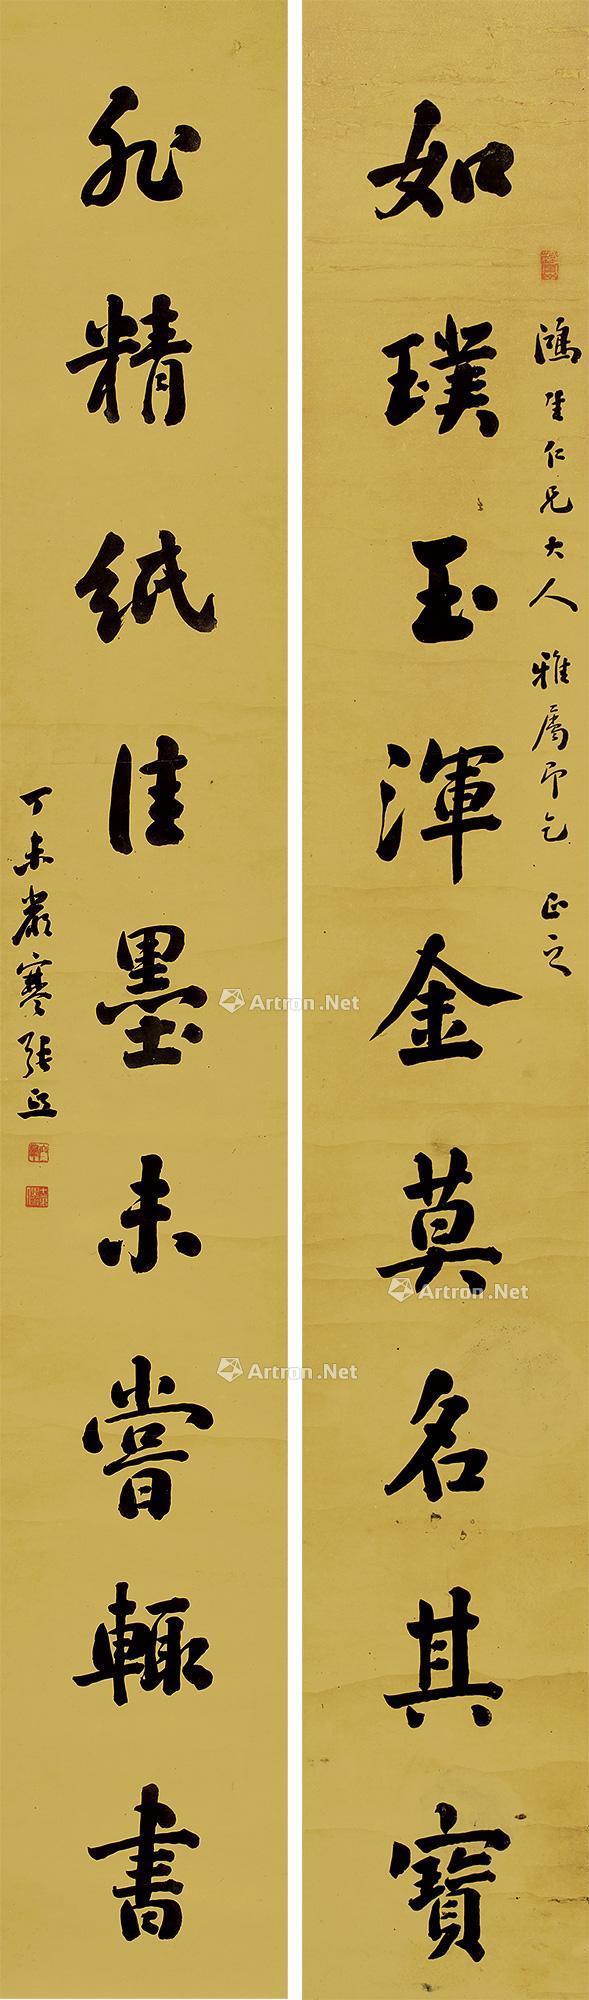 鴻生仁兄大人雅屬即乞正之
如璞玉渾金莫名其寶
非精紙佳墨未嘗輒書
丁未嚴寒張亟
Artron.Net
Artron.Net
Artron.Net